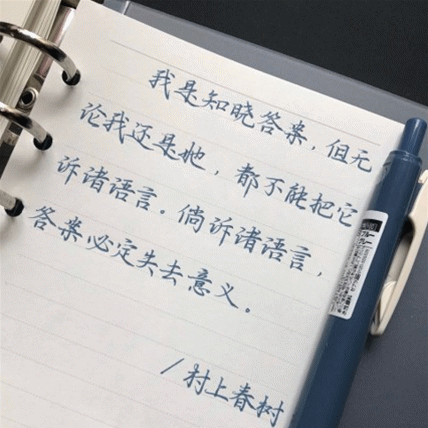 我是知晓答案，但无
论我还是她，都不能把它
诉诸语言。倘诉诸语言，
答案必定失去意义。
/村上春树
ブルー
グレー